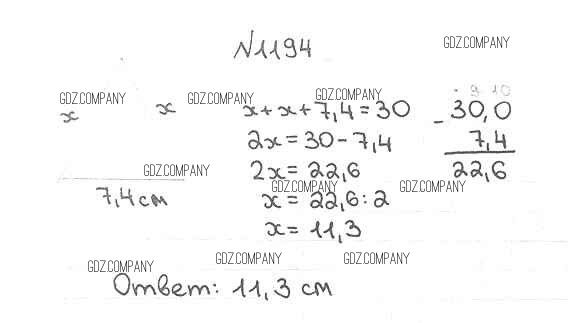 N1194
GDZ.COMPANY
GDZ.COMPANY GDZ.COMPANY GDZ.COMPANY
x x x+x+7,4=30
9 10
30,0
- 7,4
22,6
2x=30-7,4
GDZ.COMPANY 2x=22,6
7,4см GDZ.COMPANY GDZ.COMPANY
x=22,6:2
x=11,3
GDZ.COMPANY GDZ.COMPANY GDZ.COMPANY
Ответ: 11,3 см